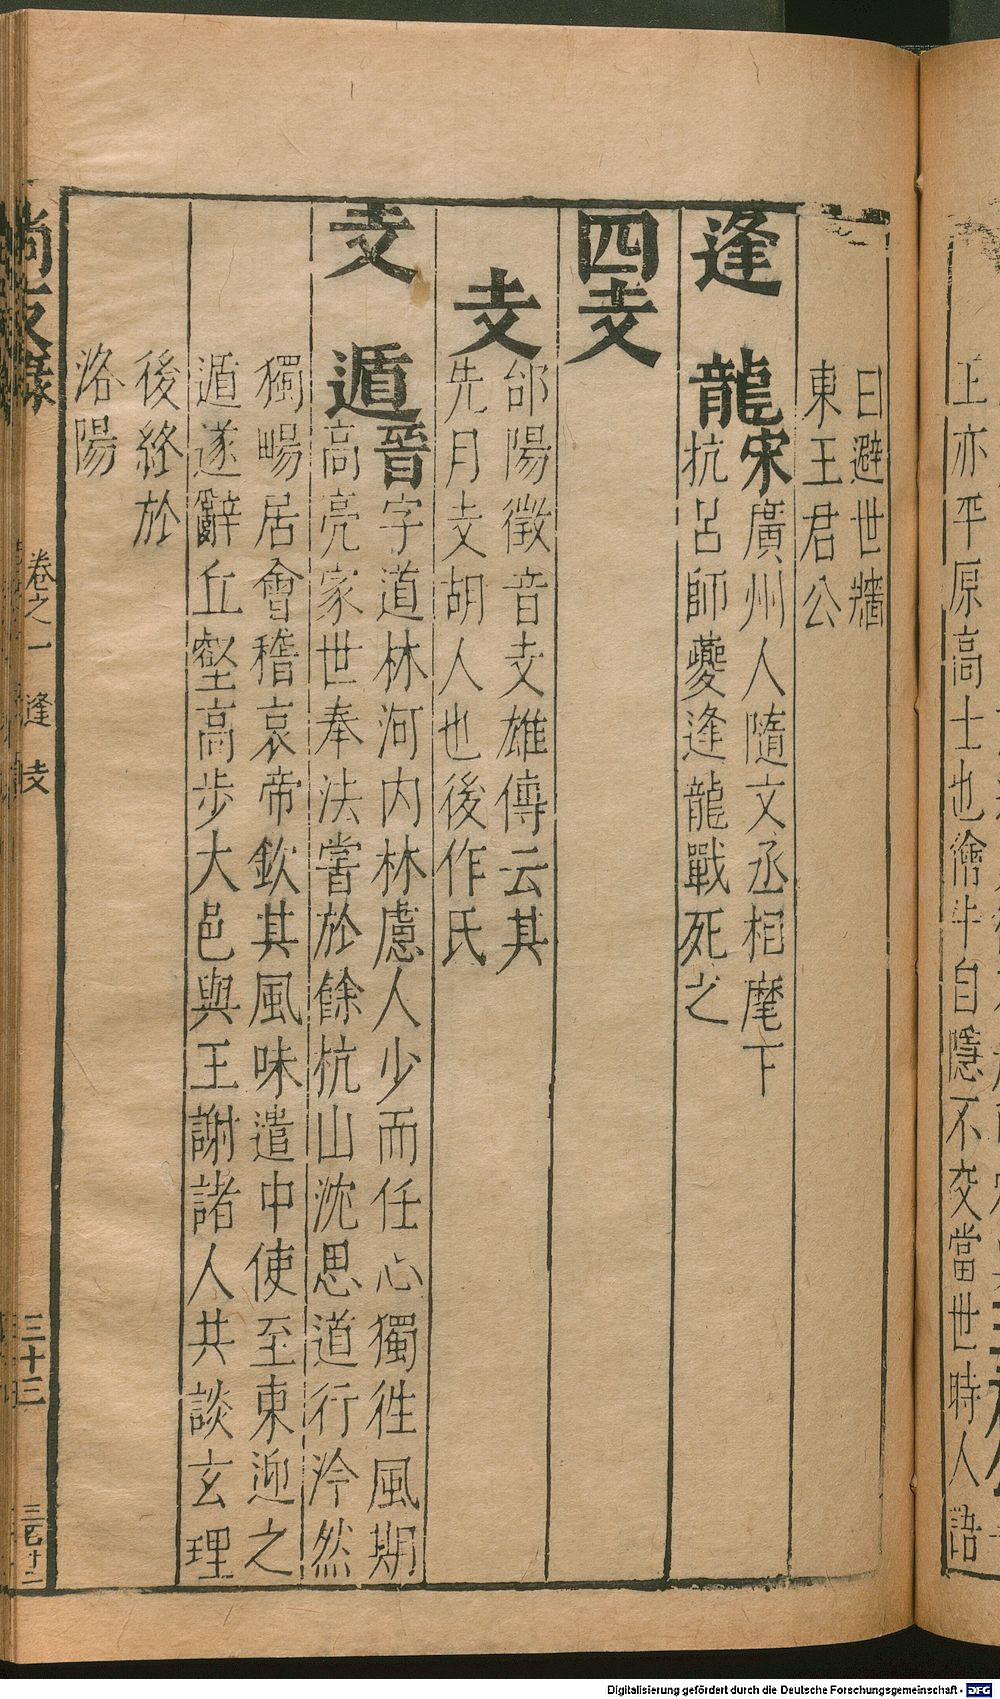 正亦平原高士也儈牛自隱不交當世時人語
曰避世牆
東王君公
逢龍宋廣州人隨文丞相麾下
抗呂師夔逢龍戰死之
四支
支邰陽徵音支雄傳云其
先月支胡人也後作氏
支遁晉字道林河内林慮人少而任心獨徃風期
高亮家世奉法嘗於餘杭山沈思道行泠然
獨暢居會稽哀帝欽其風味遣中使至東迎之
遁遂辭丘壑高步大邑與王謝諸人共談玄理
後終於
洛陽
卷之一 逢 支
三十三
Digitalisierung gefördert durch die Deutsche Forschungsgemeinschaft - DFG